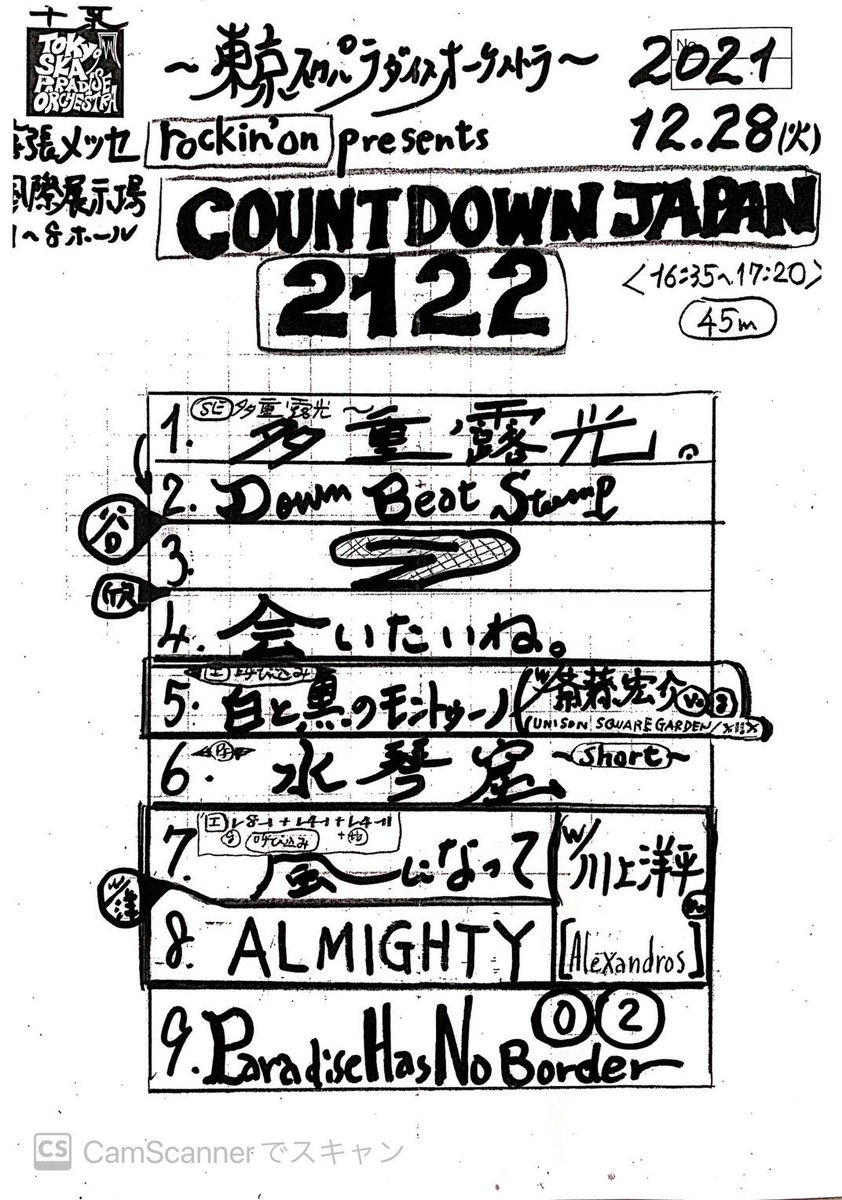 千葉
TOKYO
SKA
PARADISE
ORCHESTRA
〜東京スカパラダイスオーケストラ〜
No.
2021
12.28(火)
幕張メッセ
国際展示場
1〜8ホール
rockin'on presents
COUNTDOWN JAPAN
2122
<16:35〜17:20>
45m
1. SE 多重露光〜
多重露光。
2. Down Beat Stomp
谷
3.
欣
4. 会いたいね。
呼び込み
5. 白と黒のモントゥーノ
w/斎藤宏介 Vo g
(UNISON SQUARE GARDEN/XIIX)
6. 水琴窟 〜short〜
7. 8 + 4 + 4
呼び込み
風になって
w/川上洋平
Vo
[Alexandros]
8. ALMIGHTY
9. Paradise Has No Border
0 2
CS CamScannerでスキャン